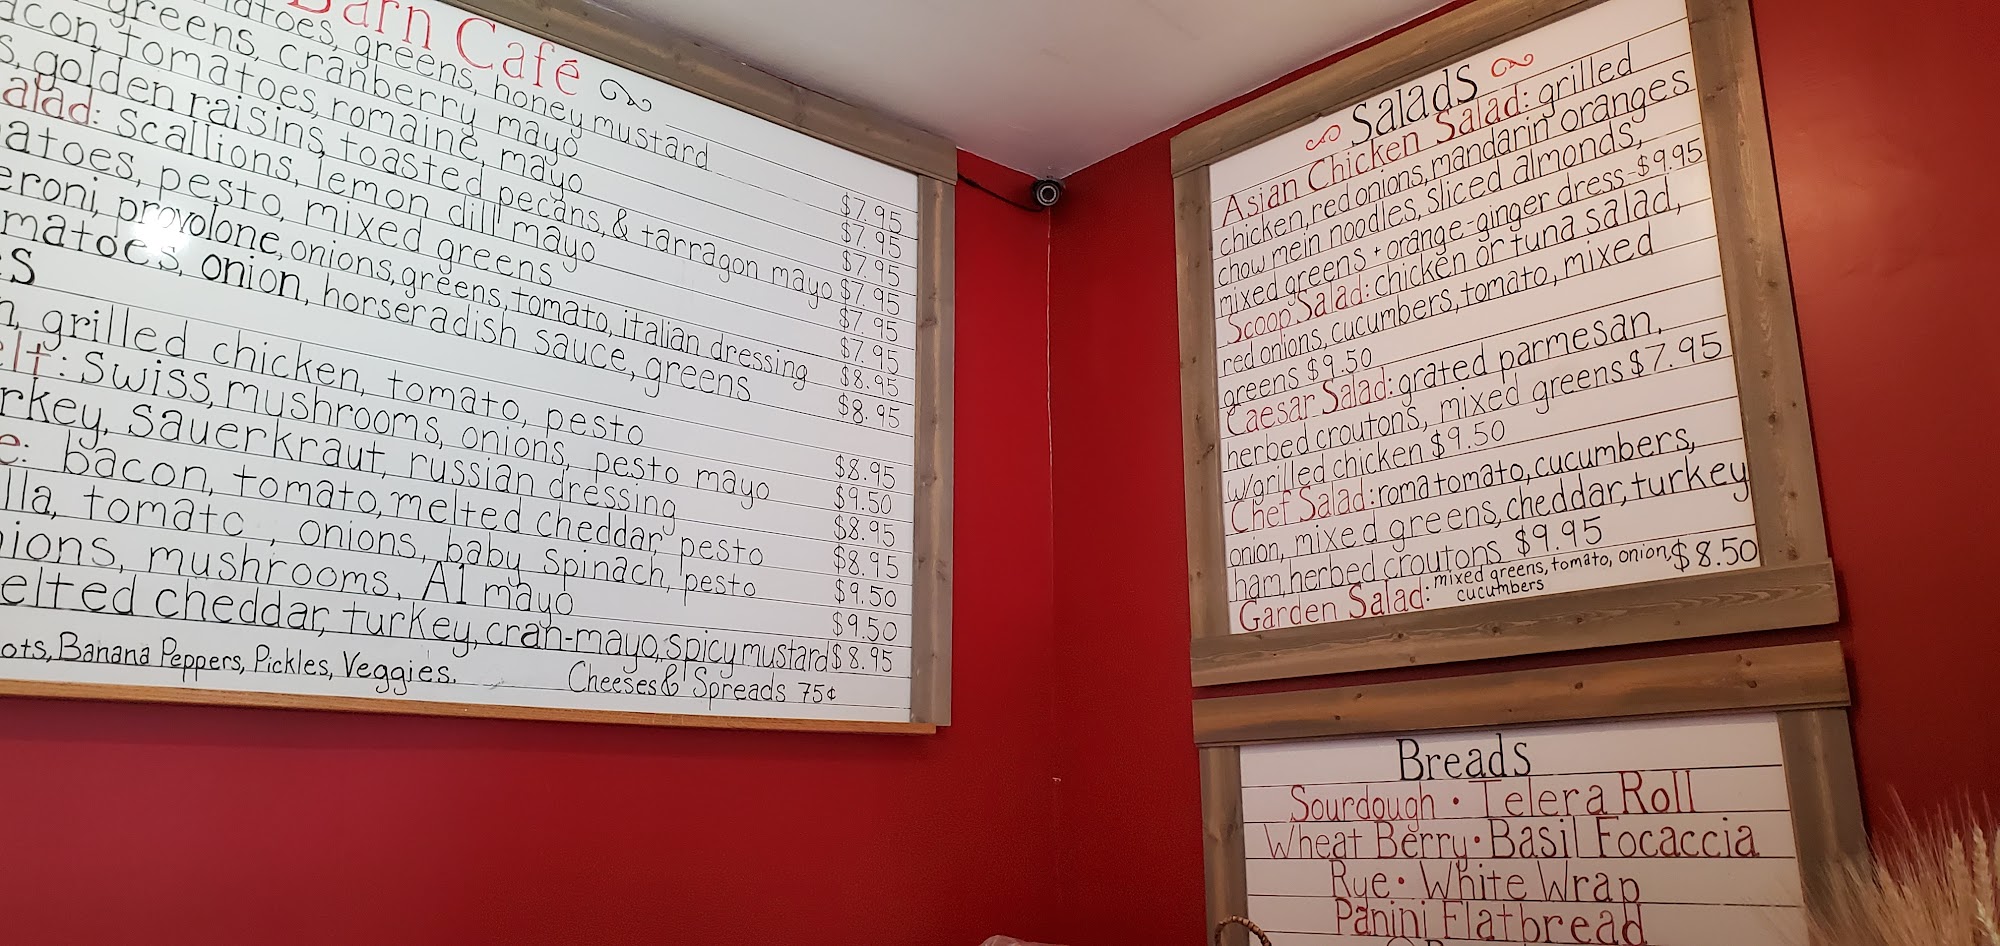 Barn Café
greens, honey mustard
greens, cranberry mayo $7.95
tomatoes, romaine, mayo $7.95
golden raisins, toasted pecans, & tarragon mayo $7.95
scallions, lemon dill mayo $7.95
pesto, mixed greens $7.95
provolone, onions, greens, tomato, italian dressing $7.95
onion, horseradish sauce, greens $8.95
$8.95
grilled chicken, tomato, pesto
Swiss, mushrooms, onions, pesto mayo $8.95
sauerkraut, russian dressing $9.50
bacon, tomato, melted cheddar, pesto $8.95
tomato, onions, baby spinach, pesto $8.95
mushrooms, A1 mayo $9.50
$9.50
cheddar, turkey, cran-mayo, spicy mustard $8.95
Banana Peppers, Pickles, Veggies. Cheeses & Spreads 75¢
Salads
Asian Chicken Salad: grilled
chicken, red onions, mandarin oranges
chow mein noodles, sliced almonds,
mixed greens + orange-ginger dress- $9.95
Scoop Salad: chicken or tuna salad,
red onions, cucumbers, tomato, mixed
greens $9.50
Caesar Salad: grated parmesan,
herbed croutons, mixed greens $7.95
w/grilled chicken $9.50
Chef Salad: roma tomato, cucumbers,
onion, mixed greens, cheddar, turkey
ham, herbed croutons $9.95
Garden Salad: mixed greens, tomato, onion, $8.50
cucumbers
Breads
Sourdough • Telera Roll
Wheat Berry • Basil Focaccia
Rye • White Wrap
Panini Flatbread